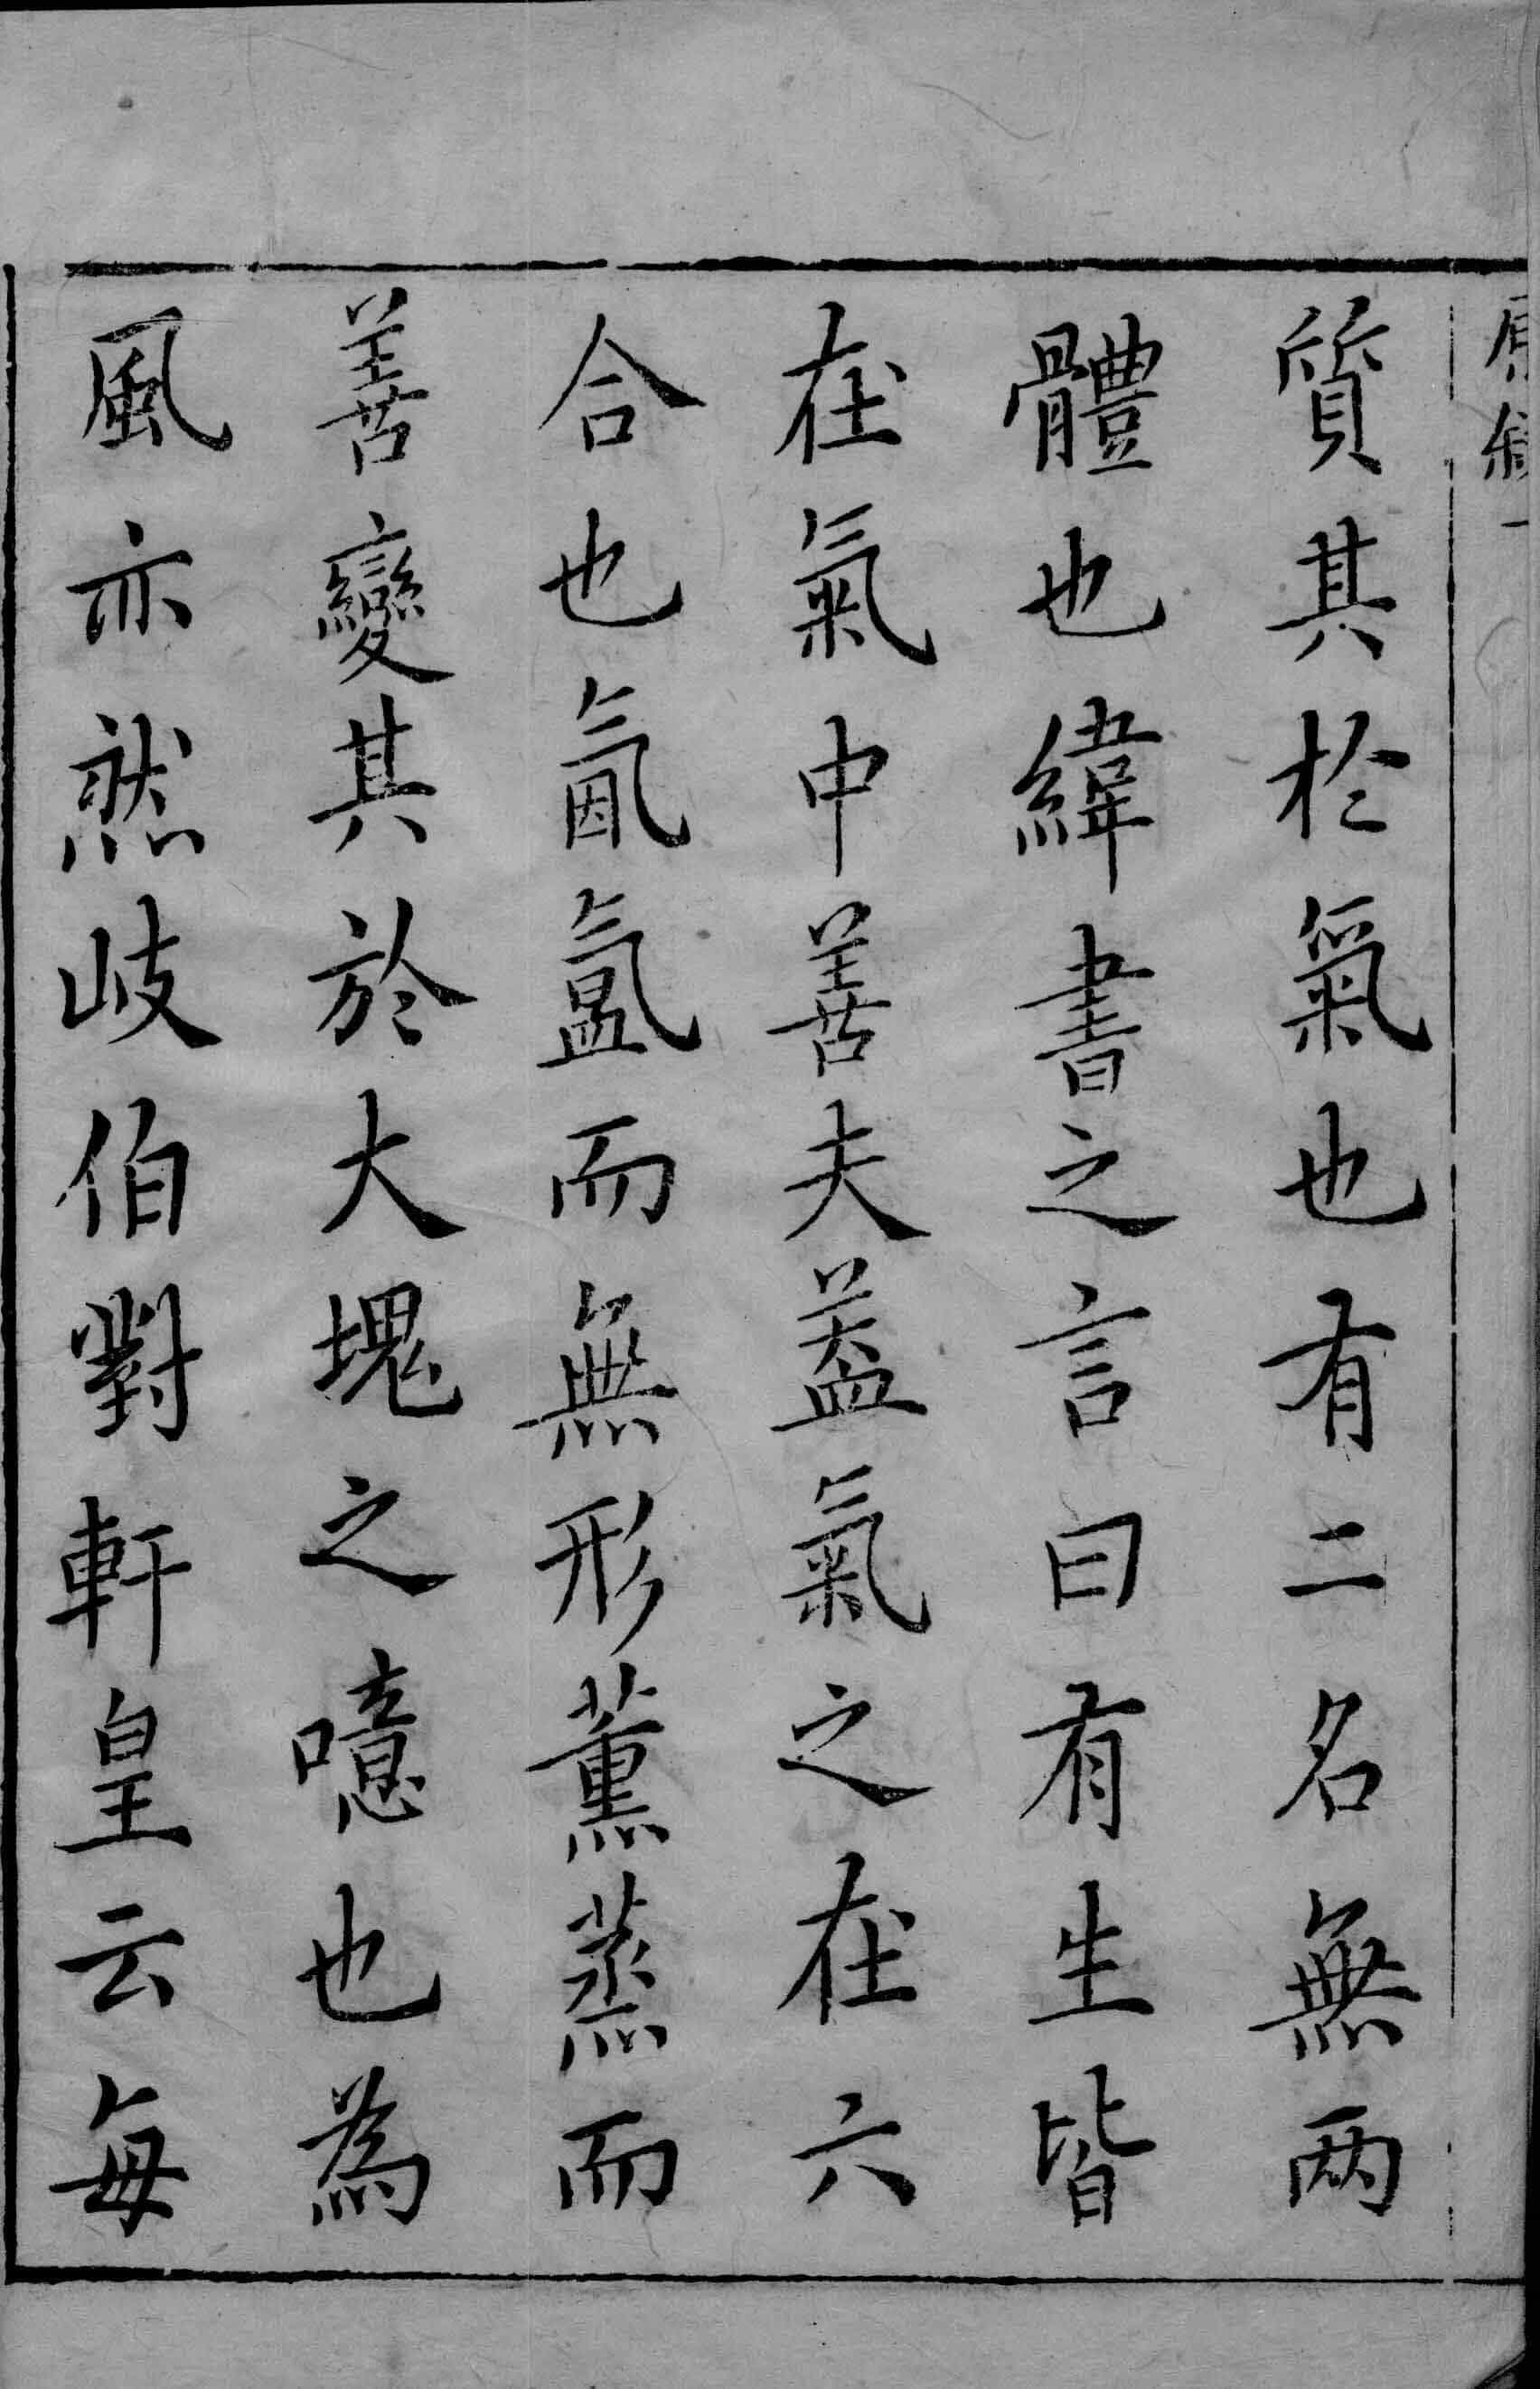 質其於氣也有二名無两
體也緯書之言曰有生皆
在氣中善夫葢氣之在六
合也氤氲而無形薰蒸而
善變其於大塊之噫也為
風亦然岐伯對軒皇云每